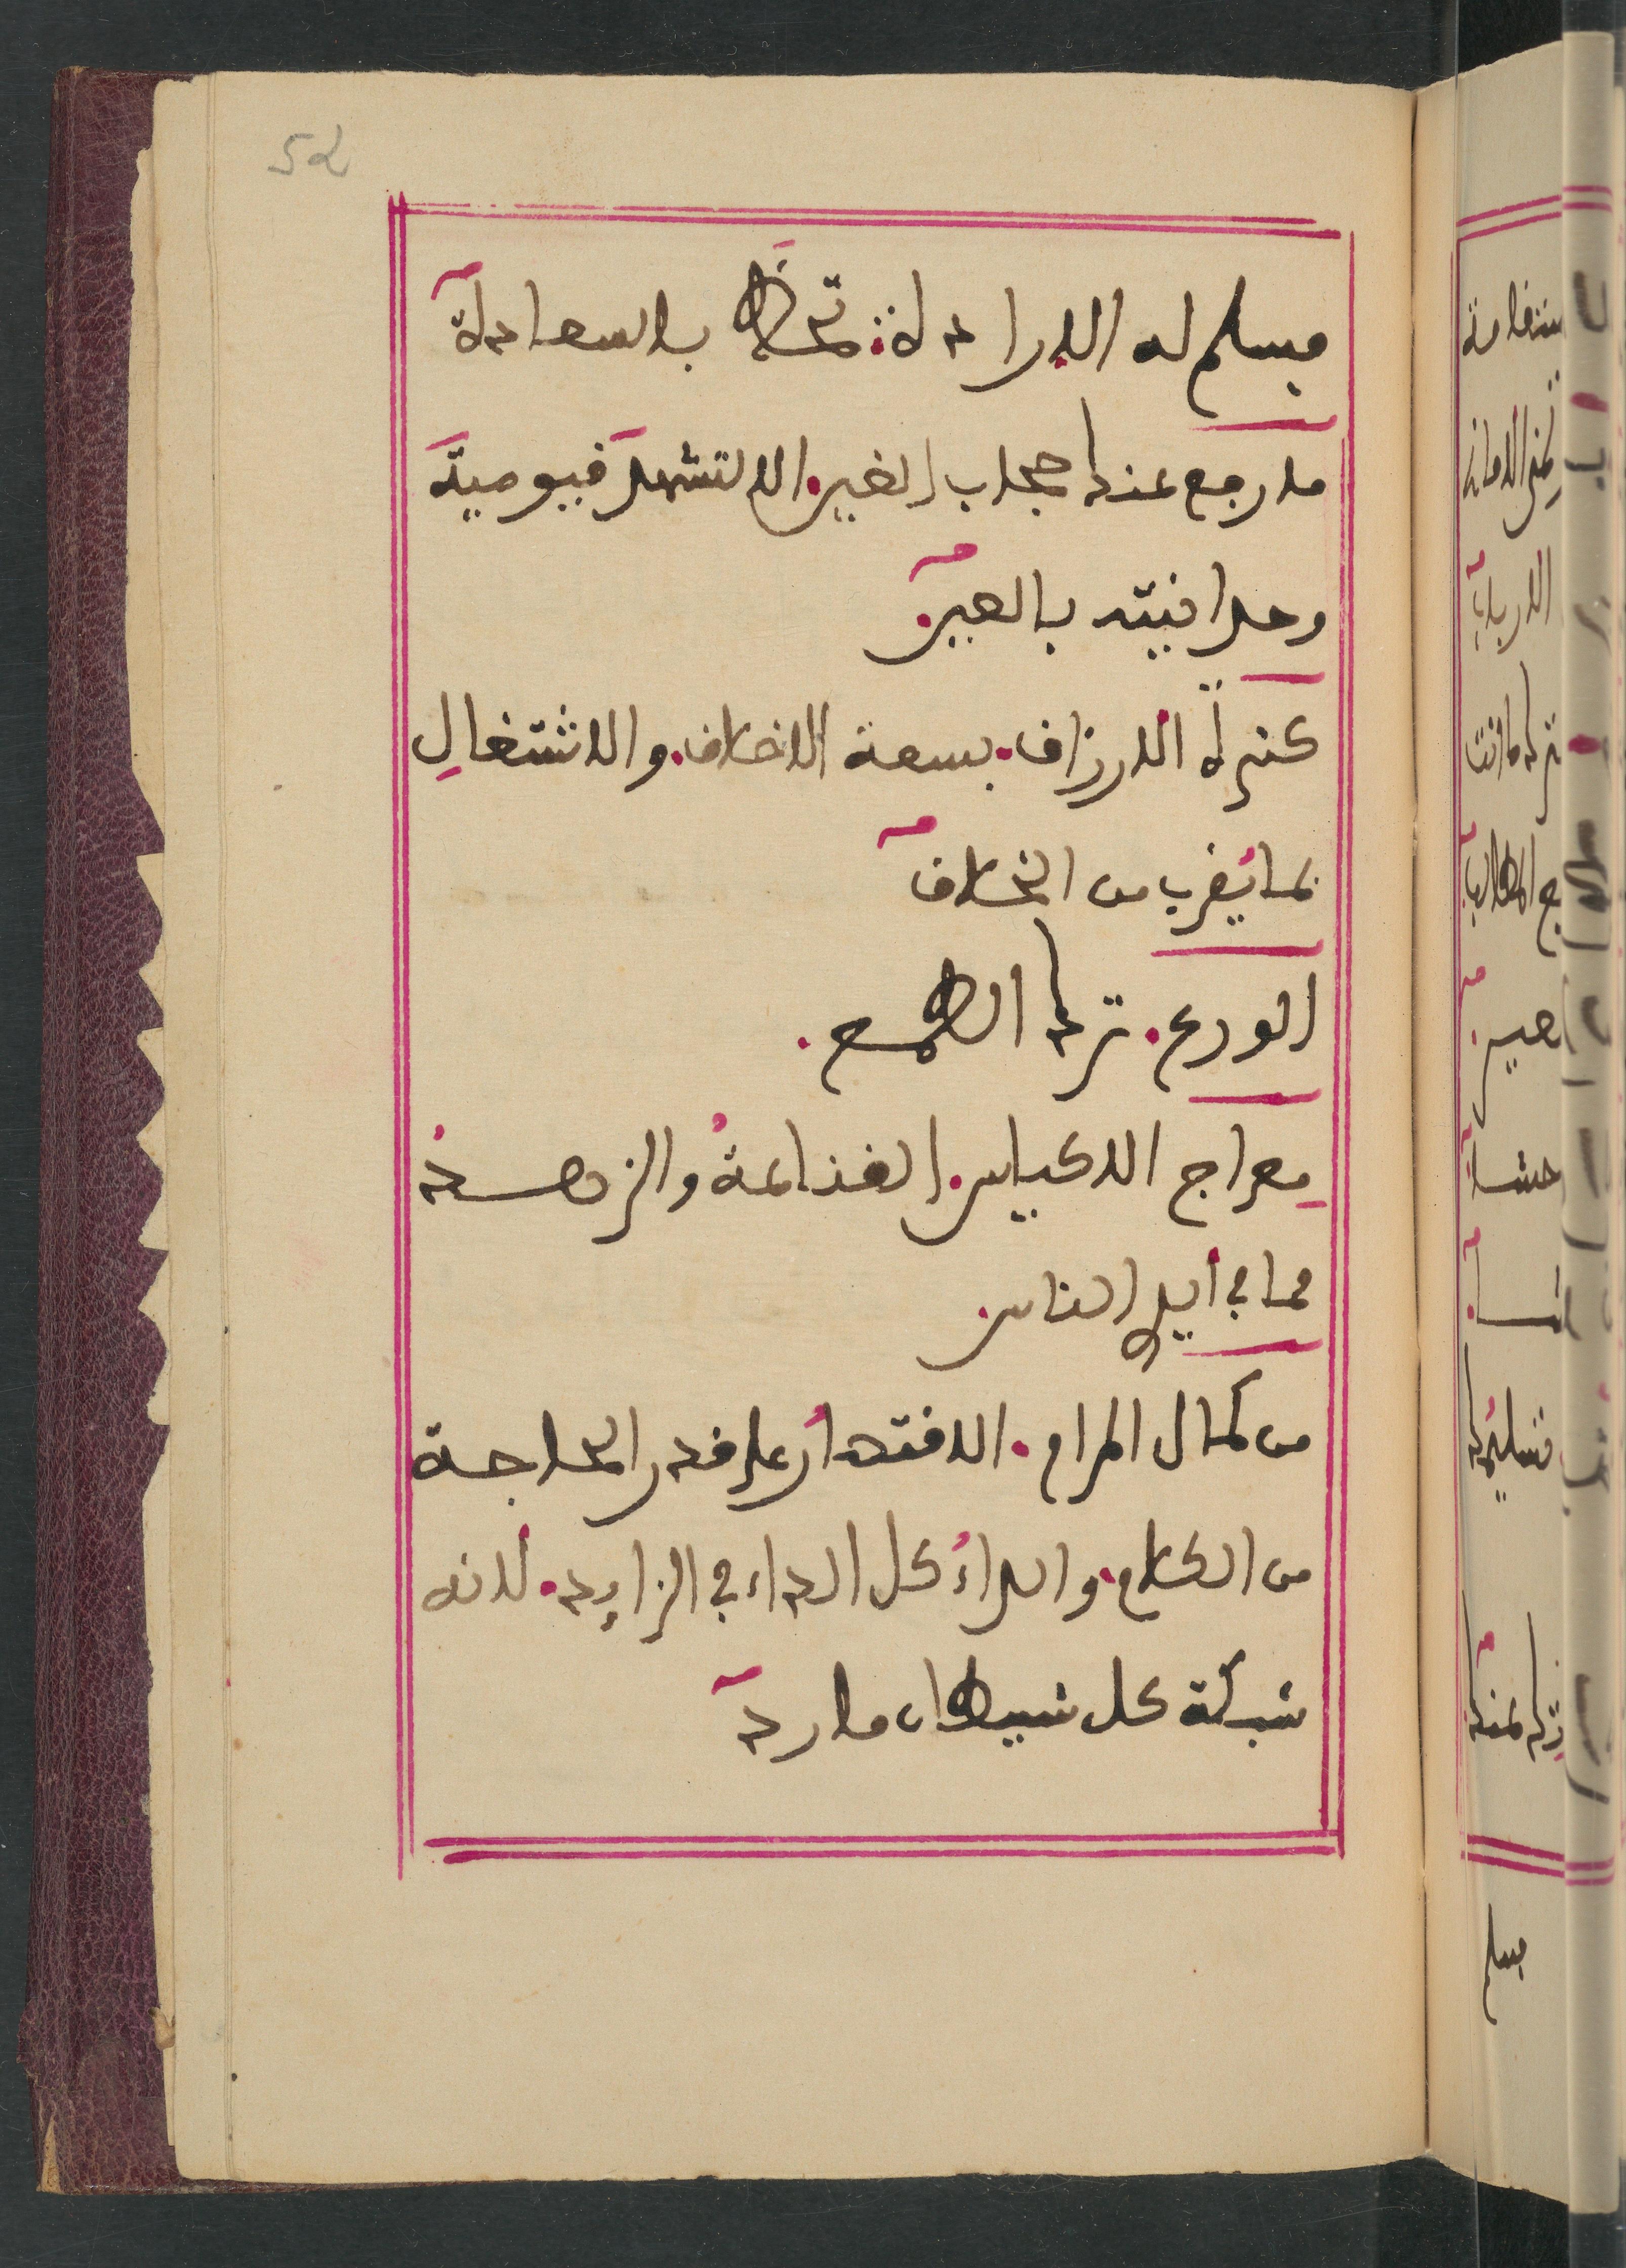 52
فسلم له الإرادة. تحظَ بالسعادة
ما رفع عنك حجاب الغين. إلا لتشهد قيومية
وحدانيته بالعين
كنز الأرزاق. بسعة الأخلاق. والاشتغال
بما يقرب من الخلاق
الورع. ترك الطمع.
معراج الأكياس. القناعة والزهد
مما في أيدي الناس
من كمال المرام. الاقتصار على قدر الحاجة
من الكلام. والداء كل الداء في الزايد. لأنه
شبكة كل شيطان مارد
فسلم